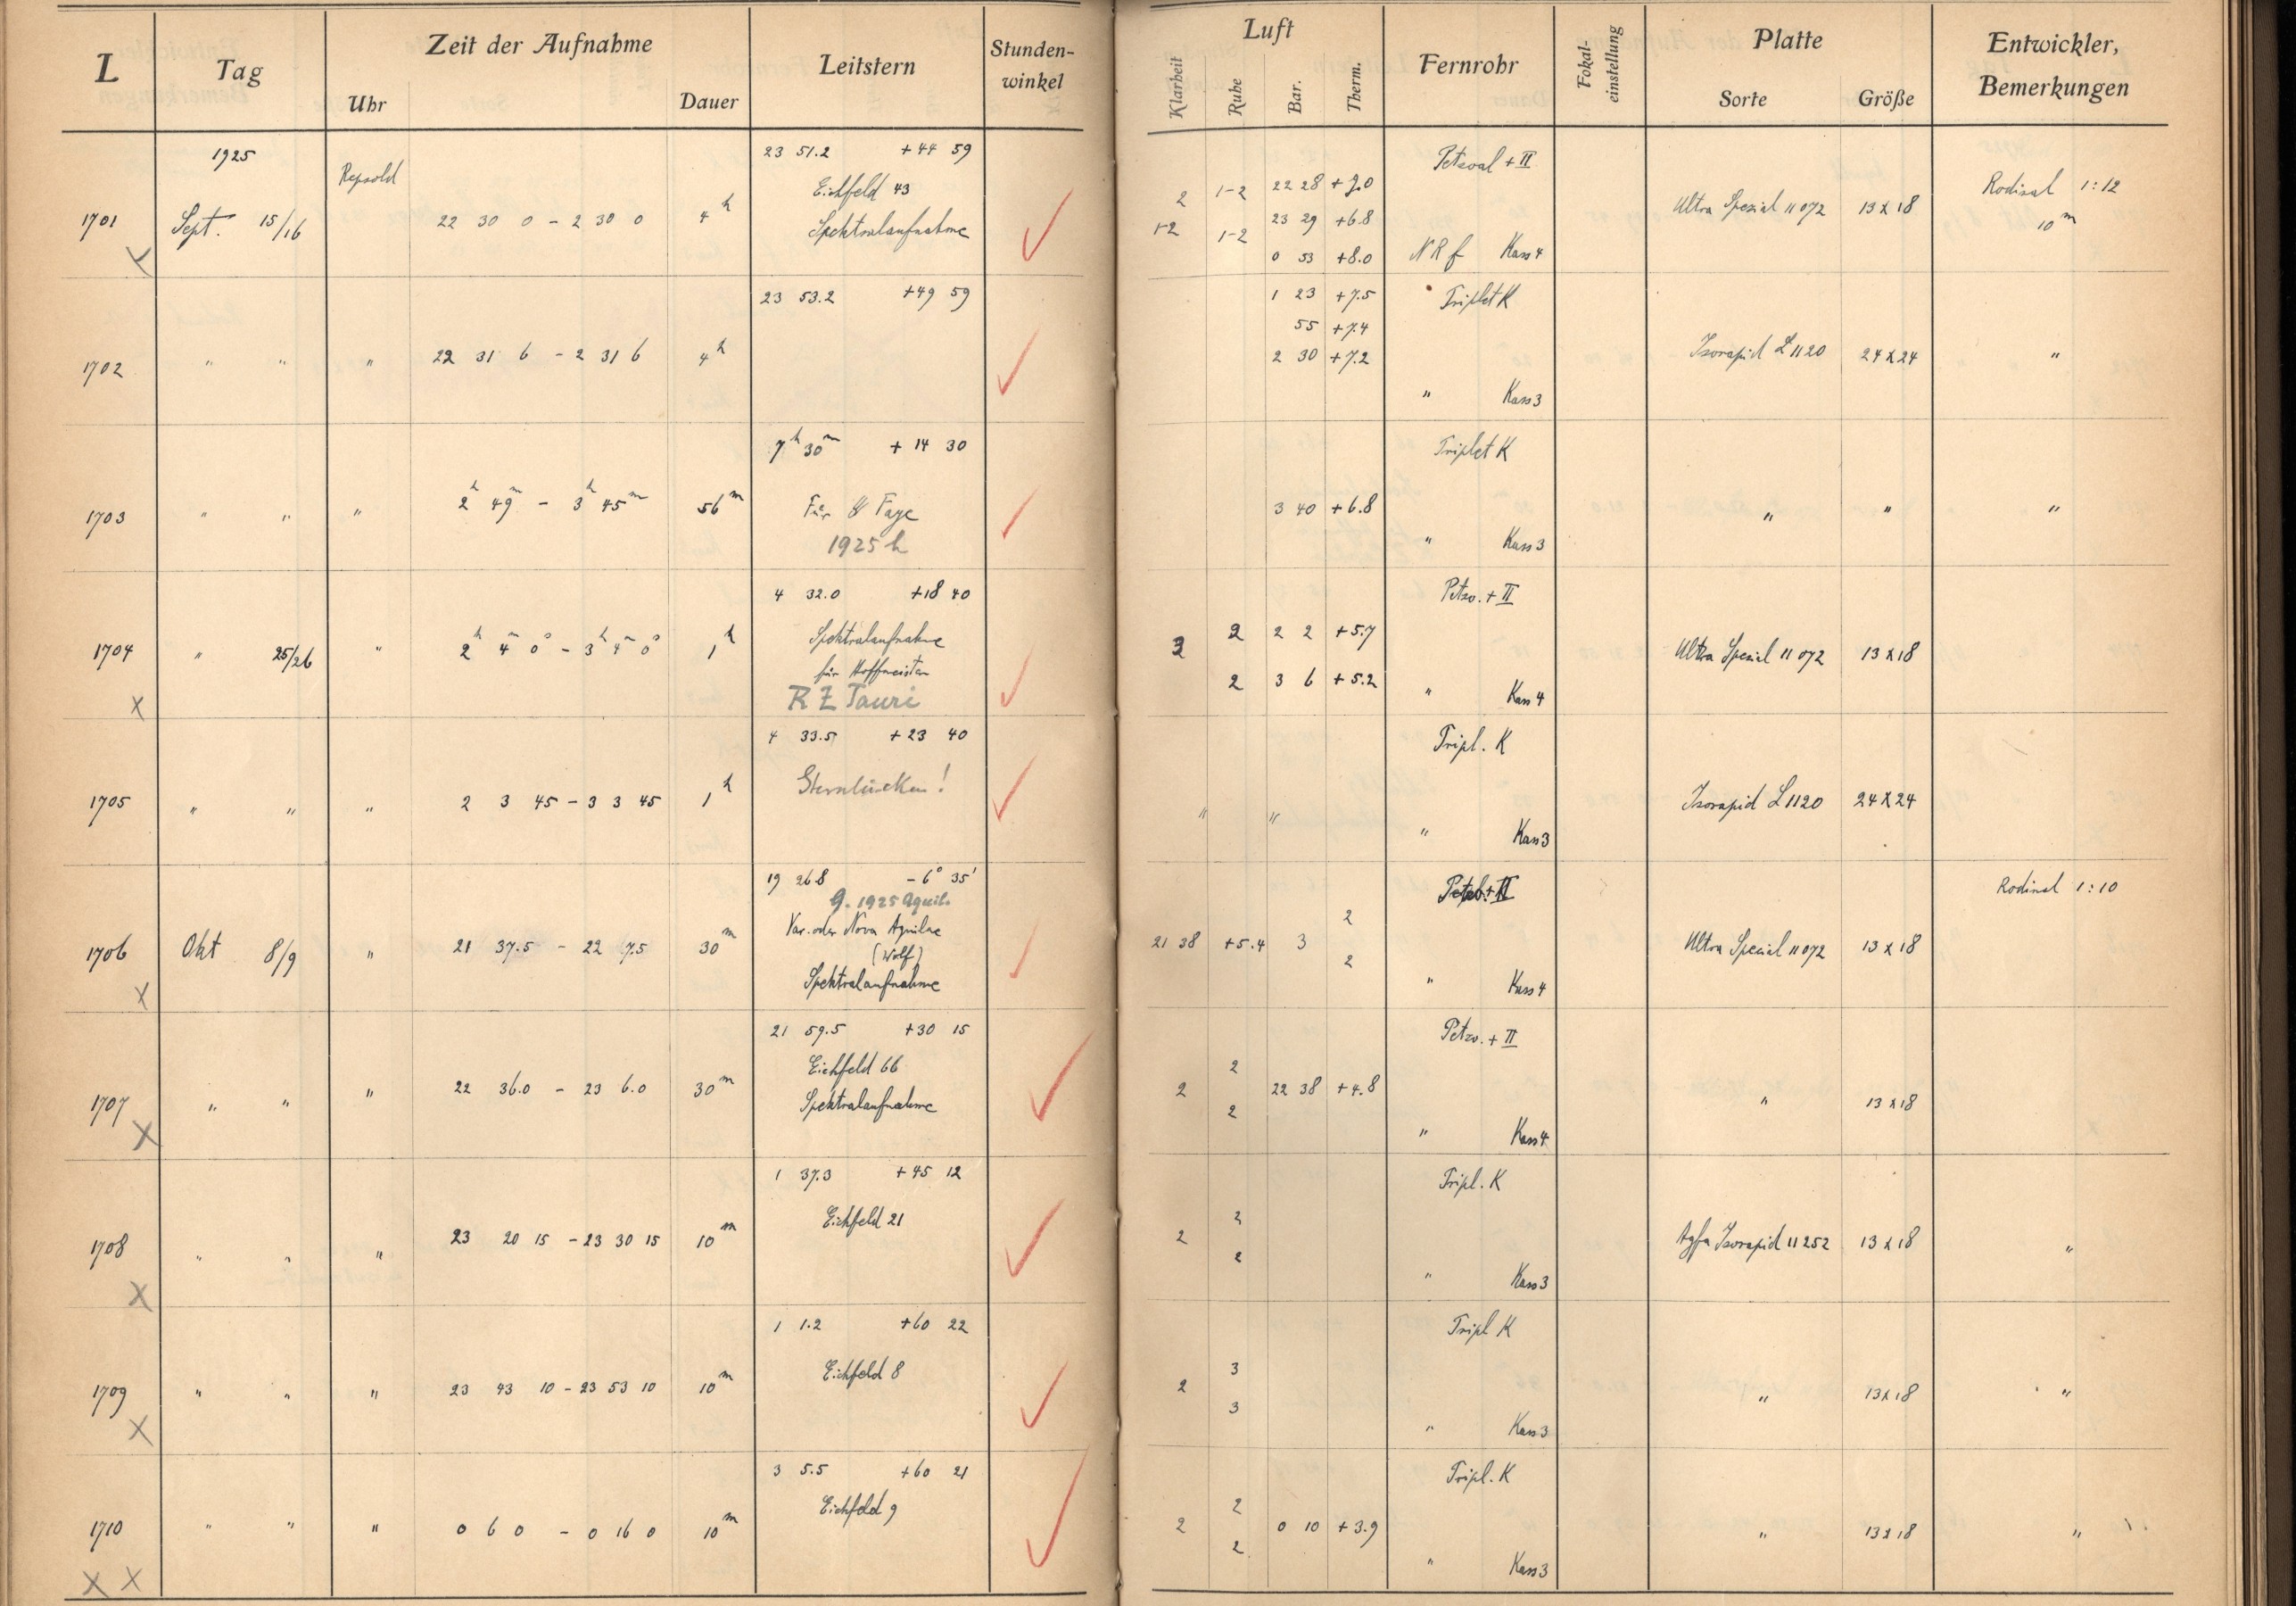 L Tag Zeit der Aufnahme Leitstern Stunden-winkel Luft Fernrohr Fokal-einstellung Platte Entwickler, Bemerkungen
Uhr Dauer Klarheit Ruhe Bar. Therm. Sorte Größe
1925 23 51.2 +44 59 Petzval + II
Repsold Eichfeld 43 2 1-2 22 28 + 9.0 Rodinal 1:12
1701 Sept. 15/16 22 30 0 - 2 30 0 4h Spektralaufnahme 1-2 1-2 23 29 +6.8 Ultra Spezial 11072 13x18 10m
0 53 +8.0 N R f Kass 4
23 53.2 +49 59 1 23 +7.5 Triplet K
55 +7.4
1702 " " " 22 31 6 - 2 31 6 4h 2 30 +7.2 Isorapid L 1120 24x24 "
" Kass 3
7h 30m + 14 30 Triplet K
1703 " " " 2h 49m - 3h 45m 56m Für Faye 3 40 +6.8 " " "
1925 h " Kass 3
4 32.0 +18 40 Petzv. + II
1704 " 25/26 " 2h 4m 0s - 3h 4m 0s 1h Spektralaufnahme 3 2 2 2 +5.7 Ultra Spezial 11072 13x18
für Hoffmeister 2 3 6 +5.2 " Kass 4
X RZ Tauri
4 33.5 + 23 40 Tripl. K
1705 " " " 2 3 45 - 3 3 45 1h Sternlücken! " " Isorapid L 1120 24x24
" Kass 3
19 26.8 - 6° 35' Petzv. + II Rodinal 1:10
9. 1925 Aquil. 2
1706 Okt 8/9 " 21 37.5 - 22 7.5 30m Var. oder Nova Aquilae 21 38 +5.4 3 Ultra Spezial 11072 13x18
(Wolf) 2
X Spektralaufnahme " Kass 4
21 59.5 +30 15 Petzv. + II
Eichfeld 66 2
1707 " " " 22 36.0 - 23 6.0 30m Spektralaufnahme 2 22 38 +4.8 " 13x18
2
X " Kass 4
1 37.3 + 45 12 Tripl. K
Eichfeld 21 2
1708 " " " 23 20 15 - 23 30 15 10m 2 Agfa Isorapid 11252 13x18 "
2
X " Kass 3
1 1.2 +60 22 Tripl K
Eichfeld 8 3
1709 " " " 23 43 10 - 23 53 10 10m 2 " 13x18 "
3
X " Kass 3
3 5.5 +60 21 Tripl. K
Eichfeld 9 2
1710 " " " 0 6 0 - 0 16 0 10m 2 0 10 +3.9 " 13x18 "
2
X X " Kass 3